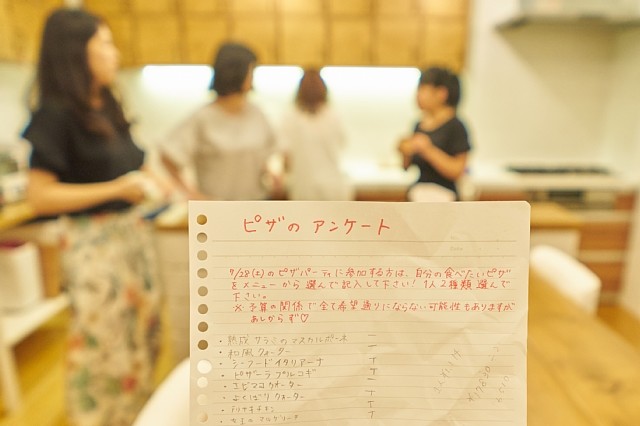 ピザの アンケート
7/28(土)のピザパーティに参加する方は、自分の食べたいピザ
をメニューから選んで記入して下さい! 1人2種類選んで
下さい。
※予算の関係で全て希望通りにならない可能性もありますが
あしからず♡
・熟成サラミのマスカルポーネ 一
・和風クォーター 一
・シーフードイタリアーナ 丅
・ピザーラプルコギ 一
・エビマヨクォーター 丅
・よくばりクォーター 丅